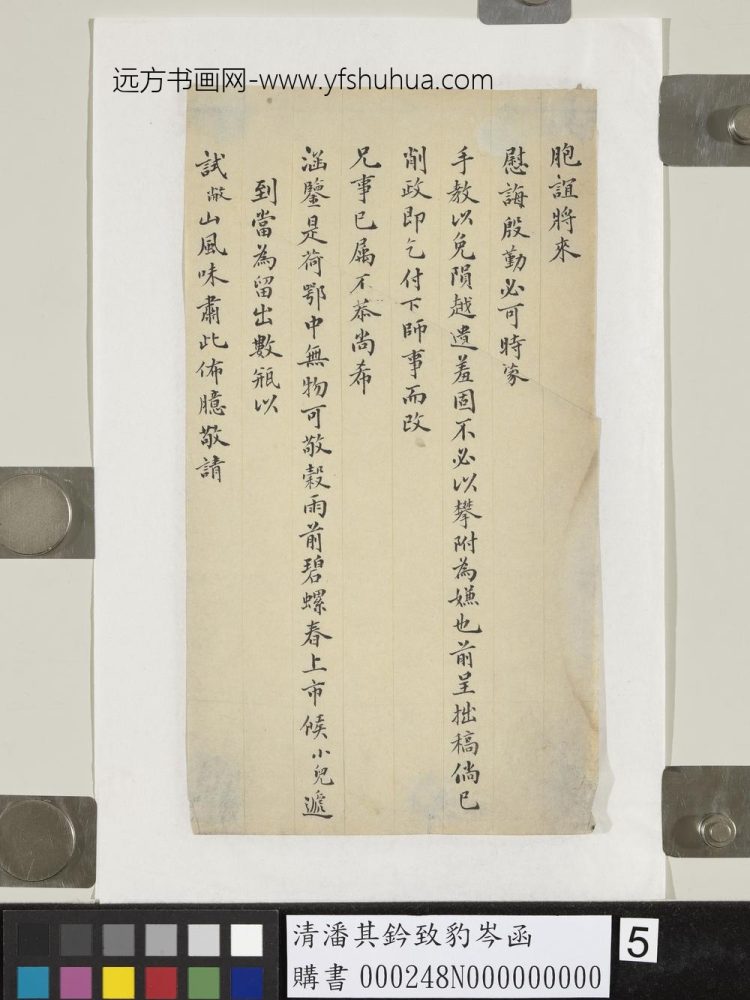 远方书画网-www.yfshuhua.com
胞誼將來
慰誨殷勤必可時蒙
手教以免隕越遺羞固不必以攀附為嫌也前呈拙稿倘已
削政即乞付下師事而改
兄事已屬不恭尚希
涵鑒是荷鄂中無物可敬穀雨前碧螺春上市候小兒遞
到當為留出數瓶以
試敝山風味肅此佈臆敬請
清潘其鈐致豹岑函
購書 000248N000000000
5